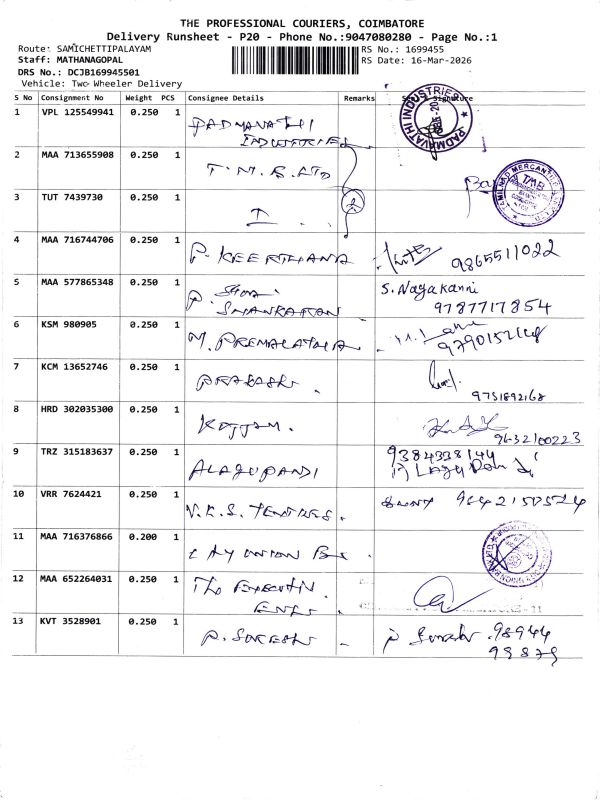 THE PROFESSIONAL COURIERS, COIMBATORE
Delivery Runsheet - P20 - Phone No.:9047080280 - Page No.:1
Route: SAMICHETTIPALAYAM RS No.: 1699455
Staff: MATHANAGOPAL RS Date: 16-Mar-2026
DRS No.: DCJB169945501
Vehicle: Two Wheeler Delivery
S No Consignment No Weight PCS Consignee Details Remarks Signature
1 VPL 125549941 0.250 1 PADMAVATHI
INDUSTRIES
PADMAVATHI INDUSTRIES
2 MAA 713655908 0.250 1 T.M.B. LTD
TAMILNAD MERCANTILE
TMB
3 TUT 7439730 0.250 1
4 MAA 716744706 0.250 1 P. KEERTHANA 9865511022
5 MAA 577865348 0.250 1 P. SIVANKARAN S. Nagakanni
9787717854
6 KSM 980905 0.250 1 M. PREMALATHA
9790152168
7 KCM 13652746 0.250 1 PRAKASH.
9751892168
8 HRD 302035300 0.250 1
9632100223
9 TRZ 315183637 0.250 1 ALAGUPANDI 9384338144
10 VRR 7624421 0.250 1 V.K.S. TEXTILES.
11 MAA 716376866 0.200 1
12 MAA 652264031 0.250 1 The EXECUTIV.
13 KVT 3528901 0.250 1 P. SURESH 98944